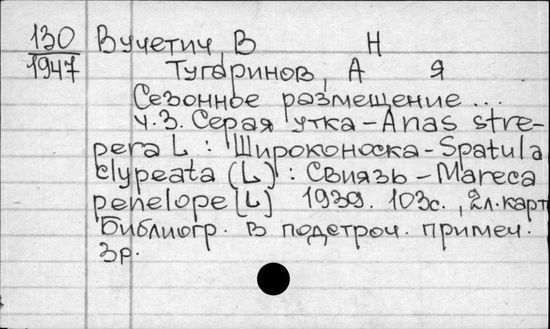 130 Вучетич, В Н
1947 Тугаринов, А Я
Сезонное размещение ...
ч.3. Серая утка - Anas stre-
pera L : Широконоска - Spatula
clypeata (L) : Свиязь - Mareca
penelope (L) 1939. 103с., 2л.карт
Библиогр. в подстроч. примеч.
3р.